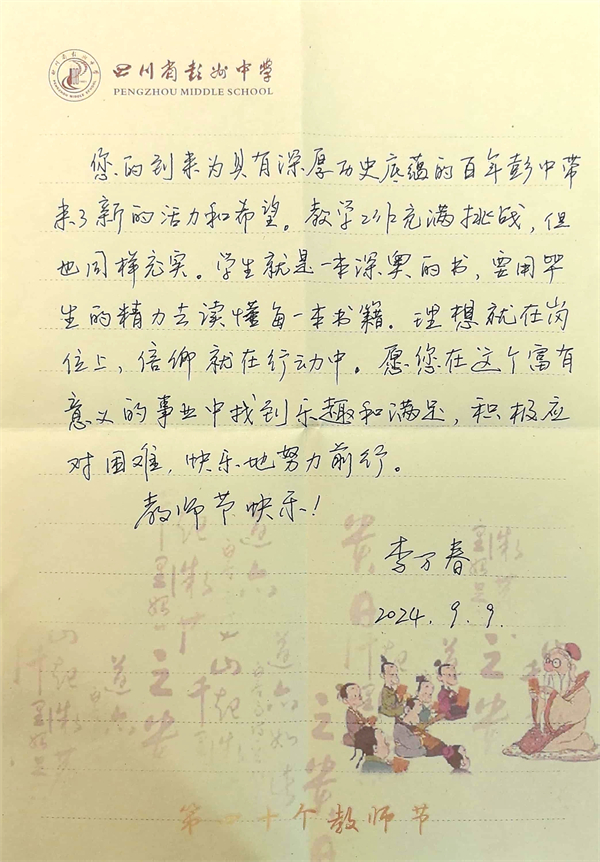 四川省彭州中学
PENGZHOU MIDDLE SCHOOL
您的到来为具有深厚历史底蕴的百年彭中带
来了新的活力和希望。教学工作充满挑战，但
也同样充实。学生就是一本深奥的书，要用毕
生的精力去读懂每一本书籍．理想就在岗
位上，信仰就在行动中。愿您在这个富有
意义的事业中找到乐趣和满足，积极应
对困难，快乐地努力前行。
教师节快乐！
李万春
2024．9．9．
第四十个教师节